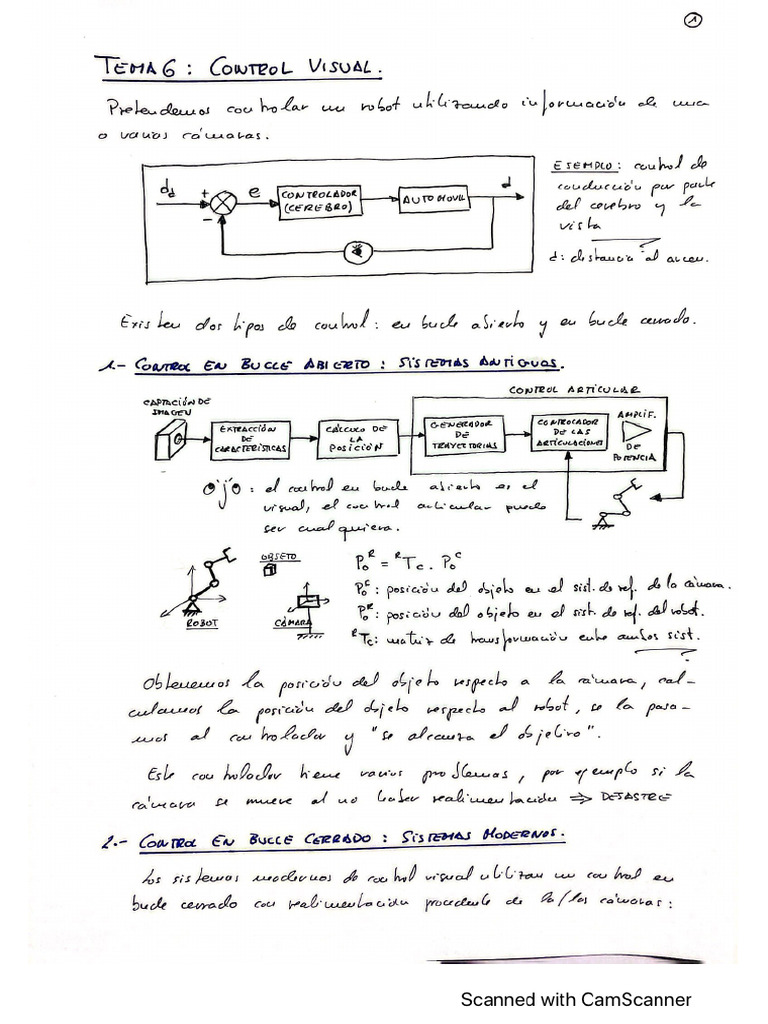 1
TEMA 6 : CONTROL VISUAL.
Pretendemos controlar un robot utilizando información de una
o varias cámaras.
dd + - e CONTROLADOR (CEREBRO) AUTOMOVIL d
ESEMPLO : control de
conducción por parte
del cerebro y la
vista
d: distancia al arcen.
Existen dos tipos de control : en bucle abierto y en bucle cerrado.
1.- CONTROL EN BUCLE ABIERTO : SISTEMAS ANTIGUOS.
CONTROL ARTICULAR
CAPTACIÓN DE
IMAGEN
EXTRACCIÓN
DE
CARACTERÍSTICAS
CÁLCULO DE
LA
POSICIÓN
GENERADOR
DE
TRAYECTORIAS
CONTROLADOR
DE LAS
ARTICULACIONES
AMPLIF.
DE
POTENCIA
Ojo : el control en bucle abierto es el
visual, el control articular puede
ser cualquiera.
ROBOT
OBJETO
CÁMARA
P₀ᴿ = ᴿTc . P₀ᶜ
P₀ᶜ : posición del objeto en el sist. de ref. de la cámara.
P₀ᴿ : posición del objeto en el sist. de ref. del robot.
ᴿTc : matriz de transformación entre ambos sist.
Obtenemos la posición del objeto respecto a la cámara, cal-
culamos la posición del objeto respecto al robot, se la pasa-
mos al controlador y "se alcanza el objetivo".
Este controlador tiene varios problemas, por ejemplo si la
cámara se mueve al no haber realimentación ⇒ DESASTRE
2.- CONTROL EN BUCLE CERRADO : SISTEMAS MODERNOS.
Los sistemas modernos de control visual utilizan un control en
bucle cerrado con realimentación procedente de la/las cámaras :
Scanned with CamScanner